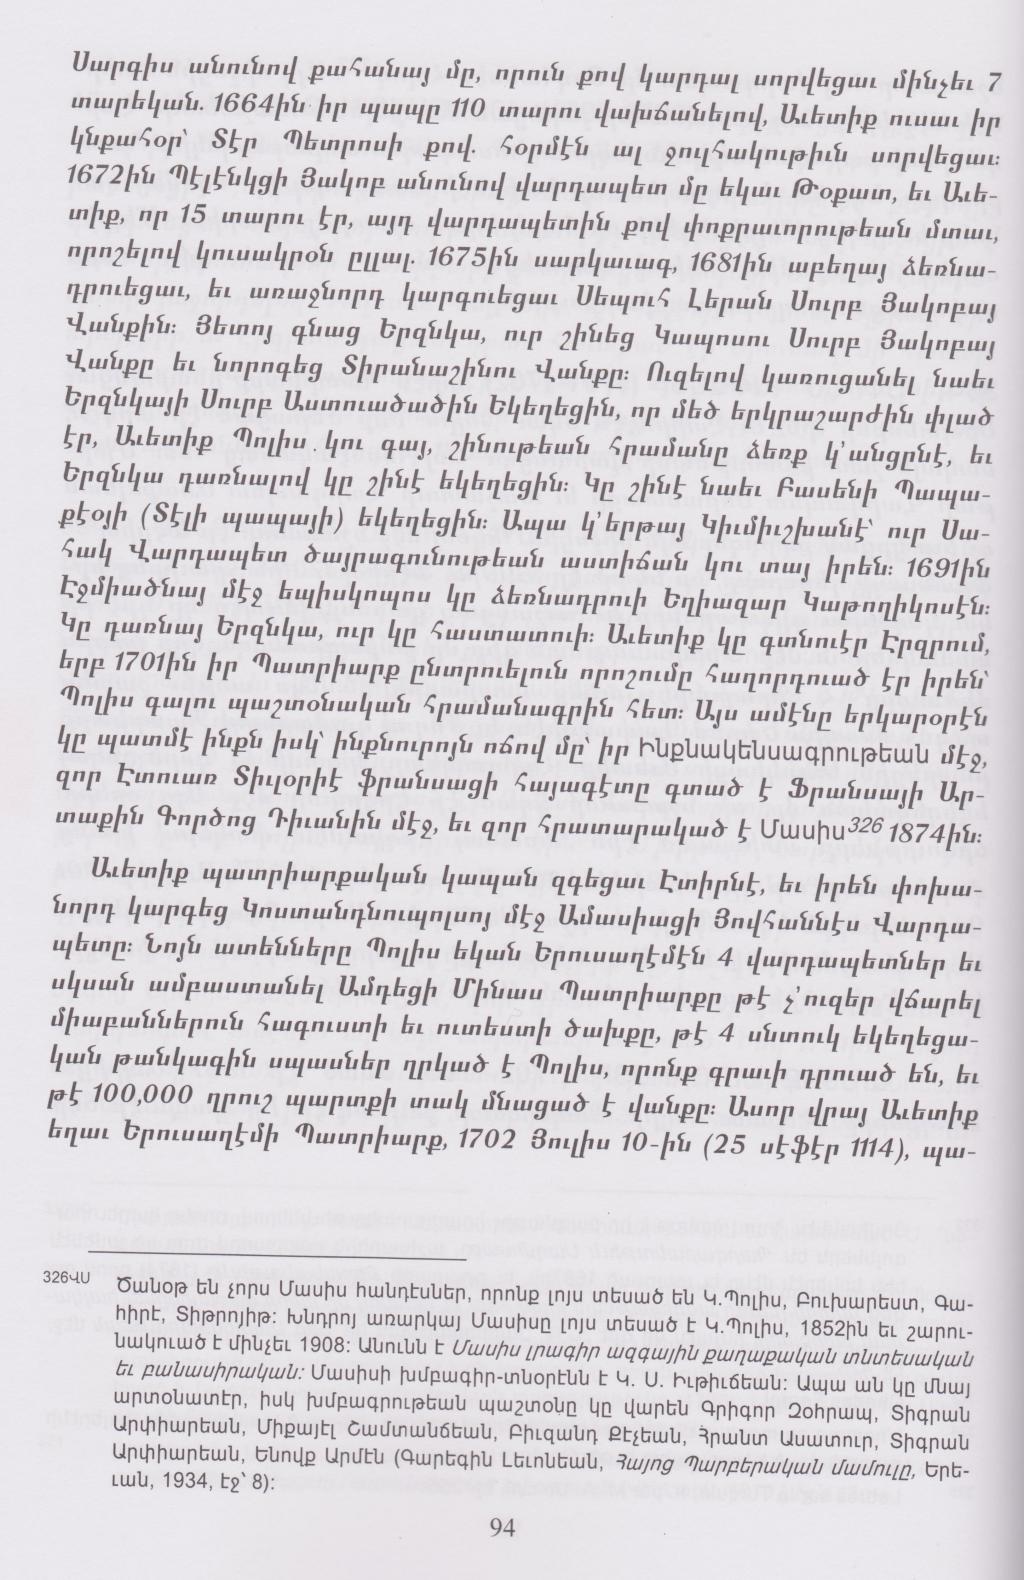 Սարգիս անունով քահանայ մը, որուն քով կարդալ սորվեցաւ մինչեւ 7
տարեկան. 1664ին իր պապը 110 տարու վախճանելով, Աւետիք ուսաւ իր
կնքահօր՝ Տէր Պետրոսի քով. հօրմէն ալ ջուլհակութիւն սորվեցաւ:
1672ին Պէլէնկցի Յակոբ անունով վարդապետ մը եկաւ Թօքատ, եւ Աւե-
տիք, որ 15 տարու էր, այդ վարդապետին քով փոքրաւորութեան մտաւ,
որոշելով կուսակրօն ըլլալ. 1675ին սարկաւագ, 1681ին աբեղայ ձեռնա-
դրուեցաւ, եւ առաջնորդ կարգուեցաւ Սեպուհ Լերան Սուրբ Յակոբայ
Վանքին: Յետոյ գնաց Երզնկա, ուր շինեց Կապոսու Սուրբ Յակոբայ
Վանքը եւ նորոգեց Տիրանաշինու Վանքը: Ուզելով կառուցանել նաեւ
Երզնկայի Սուրբ Աստուածածին Եկեղեցին, որ մեծ երկրաշարժին փլած
էր, Աւետիք Պոլիս կու գայ, շինութեան հրամանը ձեռք կ՚անցընէ, եւ
Երզնկա դառնալով կը շինէ եկեղեցին: Կը շինէ նաեւ Բասենի Պապա-
քէօյի (Տէլի պապայի) եկեղեցին: Ապա կ՚երթայ Կիւմիւշխանէ՝ ուր Սա-
հակ Վարդապետ ծայրագունութեան աստիճան կու տայ իրեն: 1691ին
Էջմիածնայ մէջ եպիսկոպոս կը ձեռնադրուի Եղիազար Կաթողիկոսէն:
Կը դառնայ Երզնկա, ուր կը հաստատուի: Աւետիք կը գտնուէր Էրզրում,
երբ 1701ին իր Պատրիարք ընտրուելուն որոշումը հաղորդուած էր իրեն՝
Պոլիս գալու պաշտօնական հրամանագրին հետ: Այս ամէնը երկարօրէն
կը պատմէ ինքն իսկ՝ ինքնուրոյն ոճով մը՝ իր Ինքնակենսագրութեան մէջ,
զոր Էտուառ Տիւլօրիէ ֆրանսացի հայագէտը գտած է Ֆրանսայի Ար-
տաքին Գործոց Դիւանին մէջ, եւ զոր հրատարակած է Մասիս326 1874ին:
Աւետիք պատրիարքական կապան զգեցաւ Էտիրնէ, եւ իրեն փոխա-
նորդ կարգեց Կոստանդնուպոլսոյ մէջ Ամասիացի Յովհաննէս Վարդա-
պետը: Նոյն ատենները Պոլիս եկան Երուսաղէմէն 4 վարդապետներ եւ
սկսան ամբաստանել Ամդեցի Մինաս Պատրիարքը թէ չ՚ուզեր վճարել
միաբաններուն հագուստի եւ ուտեստի ծախքը, թէ 4 սնտուկ եկեղեցա-
կան թանկագին սպասներ ղրկած է Պոլիս, որոնք գրաւի դրուած են, եւ
թէ 100,000 ղրուշ պարտքի տակ մնացած է վանքը: Ասոր վրայ Աւետիք
եղաւ Երուսաղէմի Պատրիարք, 1702 Յուլիս 10-ին (25 սէֆէր 1114), պա-
326ՎՍ Ծանօթ են չորս Մասիս հանդէսներ, որոնք լոյս տեսած են Կ.Պոլիս, Բուխարեստ, Գա-
հիրէ, Տիթրոյիթ: Խնդրոյ առարկայ Մասիսը լոյս տեսած է Կ.Պոլիս, 1852ին եւ շարու-
նակուած է մինչեւ 1908: Անունն է Մասիս լրագիր ազգային քաղաքական տնտեսական
եւ բանասիրական: Մասիսի խմբագիր-տնօրէնն է Կ. Ս. Իւթիւճեան: Ապա ան կը մնայ
արտօնատէր, իսկ խմբագրութեան պաշտօնը կը վարեն Գրիգոր Զօհրապ, Տիգրան
Արփիարեան, Միքայէլ Շամտանճեան, Բիւզանդ Քէչեան, Հրանտ Ասատուր, Տիգրան
Արփիարեան, Ենովք Արմէն (Գարեգին Լեւոնեան, Հայոց Պարբերական մամուլը, Երե-
ւան, 1934, էջ՝ 8):
94